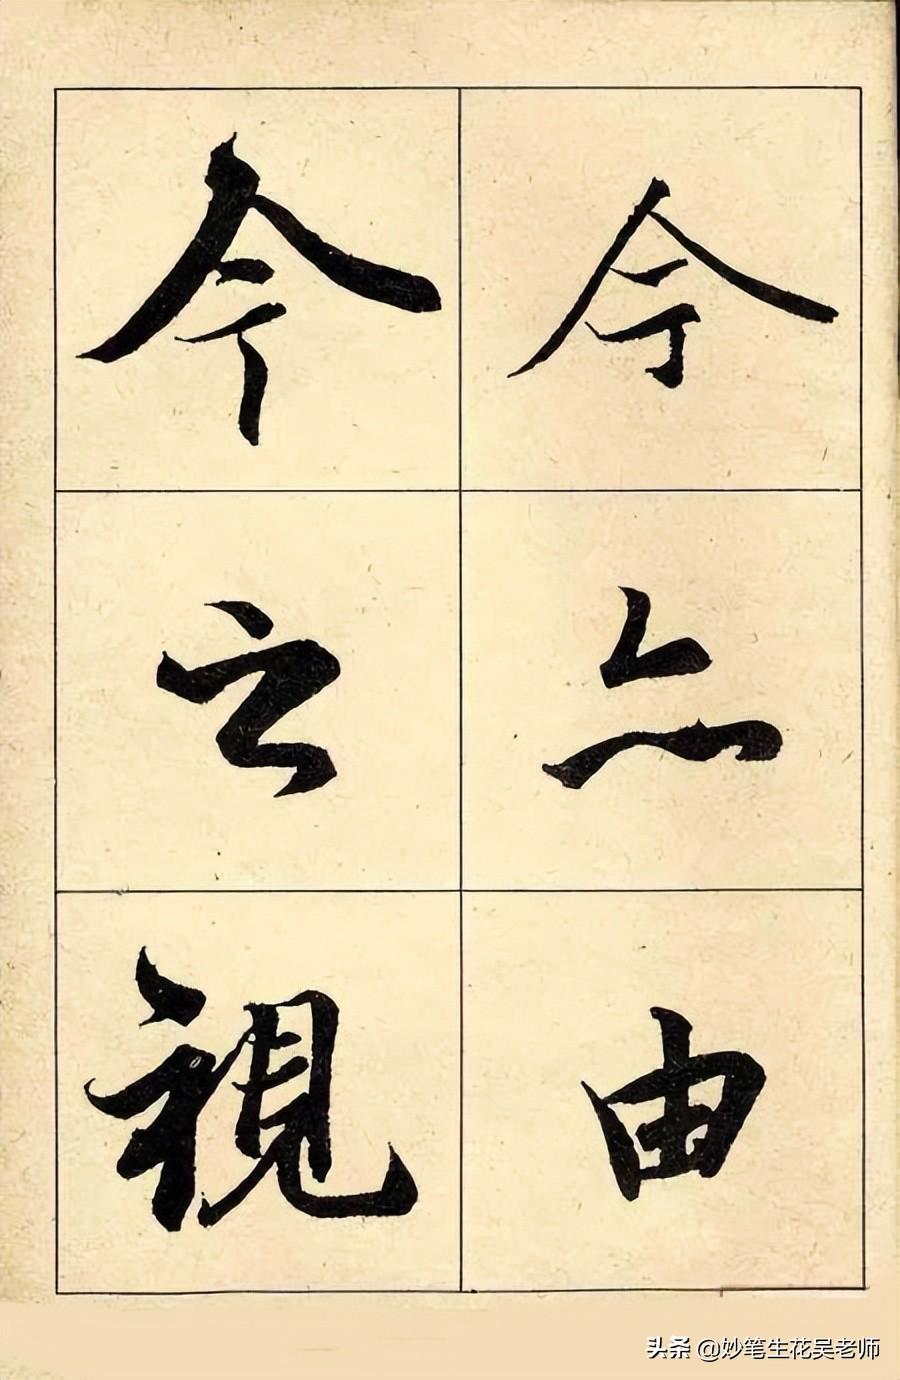 今亦由
今之視
头条 @妙笔生花吴老师